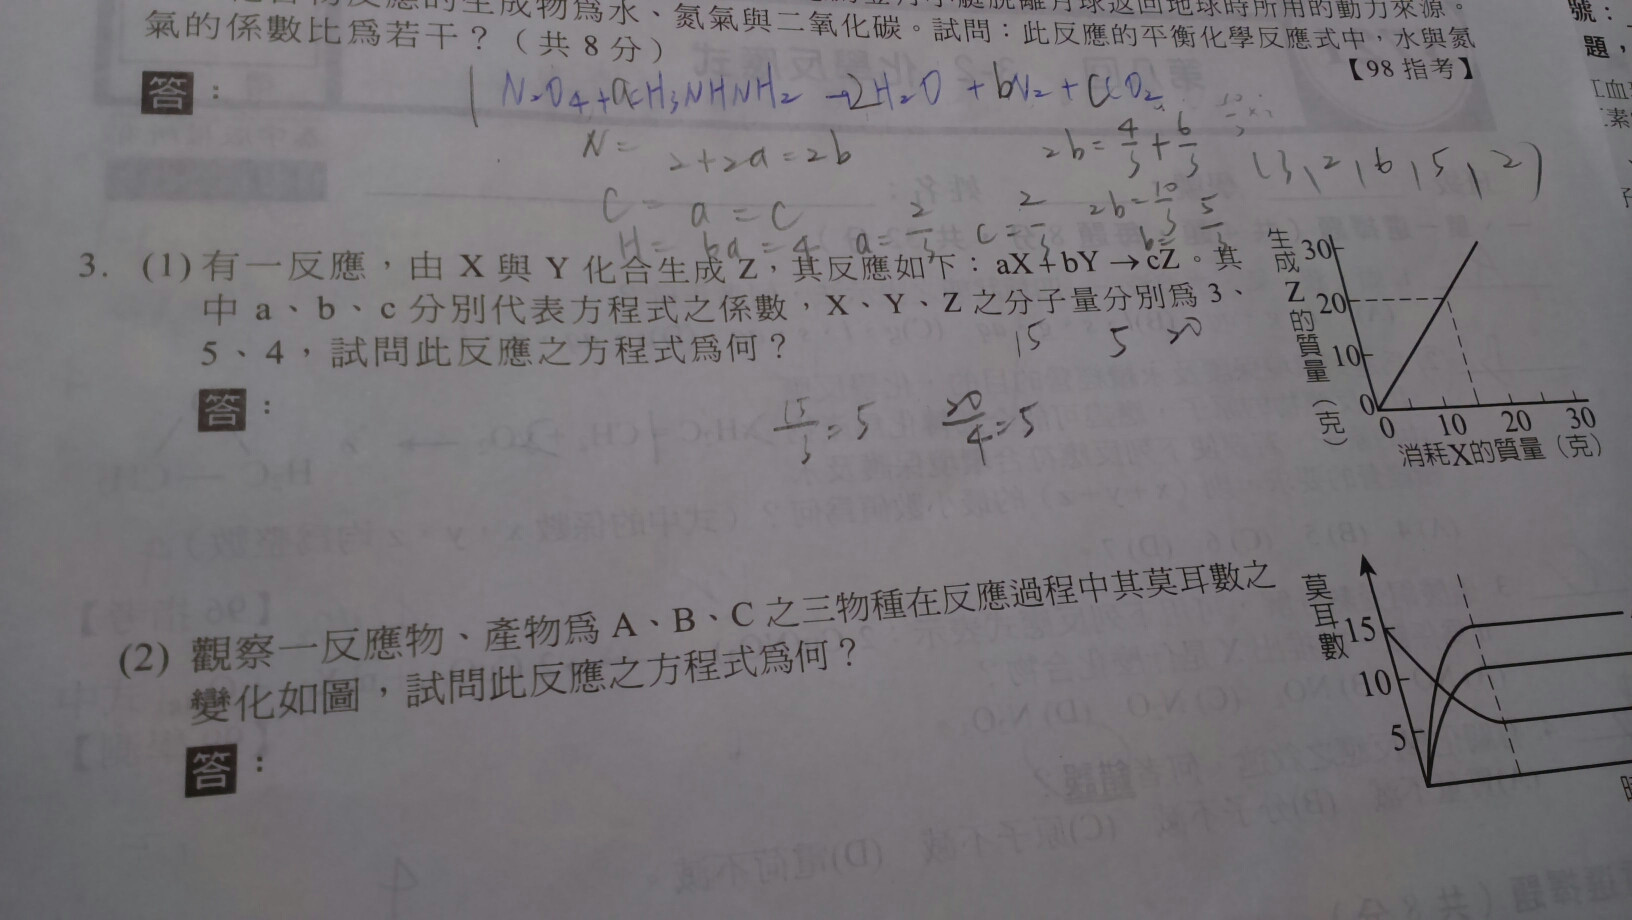 反應的生成物爲水、氮氣與二氧化碳。試問：此反應的平衡化學反應式中，水與氮
脫離月球返回地球時所用的動力來源。
氣的係數比爲若干？（共 8 分）
【98 指考】
號：
題，
答：
N₂O₄ + aCH₃NHNH₂ → 2H₂O + bN₂ + cCO₂
N = 2+2a = 2b
2b = 4/3 + 6/3
(3, 2, 6, 5, 2)
C = a = c
2b = 10/3
H = 6a = 4 a = 2/3 c = 2/3 b = 5/3
3. (1) 有一反應，由 X 與 Y 化合生成 Z，其反應如下：aX＋bY → cZ。其
中 a、b、c 分別代表方程式之係數，X、Y、Z 之分子量分別爲 3、
5、4，試問此反應之方程式爲何？
15 5 20
答：
15/3 = 5 20/4 = 5
生成Z的質量（克）
30
20
10
0
0 10 20 30
消耗X的質量（克）
(2) 觀察一反應物、產物爲 A、B、C 之三物種在反應過程中其莫耳數之
變化如圖，試問此反應之方程式爲何？
答：
莫耳數
15
10
5